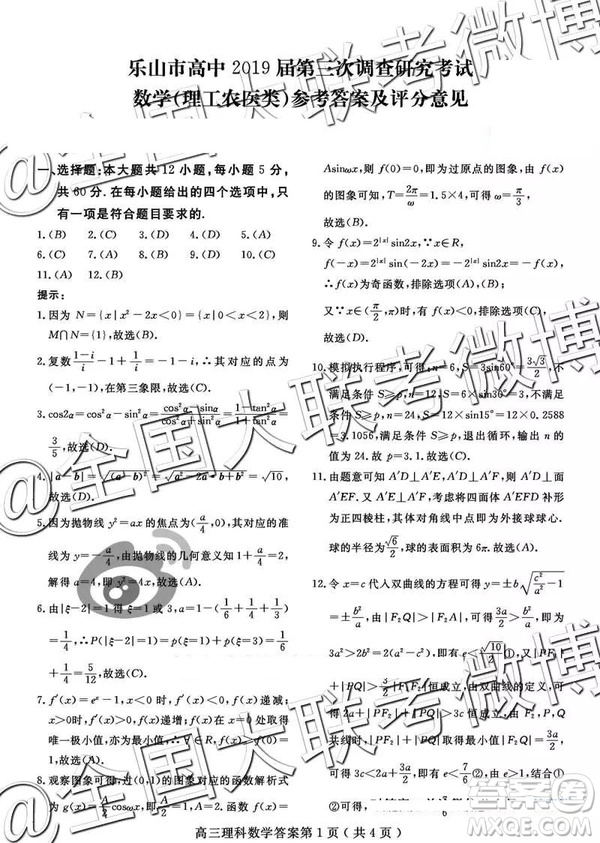 乐山市高中 2019 届第三次调查研究考试
数学(理工农医类)参考答案及评分意见
一、选择题:本大题共 12 小题,每小题 5 分,
共 60 分.在每小题给出的四个选项中,只
有一项是符合题目要求的.
1.(B) 2.(C) 3.(D) 4.(D) 5.(A)
6.(C) 7.(A) 8.(B) 9.(D) 10.(C)
11.(A) 12.(B)
提示:
1.因为 N={x|x²-2x<0}={x|0<x<2},则
M∩N={1},故选(B).
2.复数 (1-i)/i -1 + 1/i -1=-1-i,其对应的点为
(-1,-1),在第三象限,故选(C).
3.cos2α=cos²α-sin²α=(cos²α-sin²α)/(cos²α+sin²α)=(1-tan²α)/(1+tan²α)=
3/5,故选(D).
4.|a-b|=√(a-b)²=√(a²-2a·b+b²)=√10,
故选(D).
5.因为抛物线 y²=ax 的焦点为(a/4,0),其对应的准
线为 y=-a/4,由抛物线的几何意义可知 1+a/4=2,
解得 a=4,即 y²=4x.故选(A).
6.由|ξ-2|=1 得 ξ=1 或 3,a=1-(1/6+1/4+1/3)
=1/4,∴P(|ξ-2|=1)=p(ξ=1)+p(ξ=3)=1/6
+1/4=5/12,故选(C).
7.f′(x)=eˣ-1,x<0 时,f(x)递减;
x>0时,f(x)递增;f(x)在x=0处取得
唯一极小值,亦为最小值,
故选(A).
8.观察图象可得,过(0,1)的图象对应的函数解析式
Asinωx,则 f(0)=0,即为过原点的图象,由 f(x)
的图象可知,T=2π/ω=1.5×4,可得 ω=π/3.
故选(B).
9.令 f(x)=2^|x| sin2x,∵x∈R,
f(-x)=2^|-x| sin2(-x)=-2^|x| sin2x=-f(x),
∴f(x)为奇函数,排除选项(A),(B);
又∵x∈(π/2,π)时,f(x)<0,排除选项(C).
故选(D).
10.模拟执行程序,可得:n=6,S=3sin60°=3√3/2,不
满足条件 S≥p,n=12,S=6×sin30°=3,不满足
条件 S≥p,n=24,S=12×sin15°=12×0.2588
=3.1056,满足条件 S≥p,退出循环,输出 n 的
值为 24.故 p=3.1.故选(C).
11.由题意可知 A′D⊥A′E,A′D⊥A′F,则 A′D⊥面
A′EF.又 A′E⊥A′F,考虑将四面体 A′EFD 补形
为正四棱柱,其体对角线中点即为外接球球心.
球的半径为 √6/2,则球的表面积为 6π.故选(A).
12.令 x=c 代入双曲线的方程可得 y=±b√(c²/a²-1)
=±b²/a,由|F₂Q|>|F₂A|,可得
3a²>2b²=2(c²-a²),即 e=c/a<√10/2 ①.又|PF₁|
+|PQ|>3/2|F₁F₂|恒成立,由双曲线的定义,可
可得 2a+|PF₂|+|PQ|>3c 恒成立,由 F₂,P,Q
共线时,|PF₂|+|PQ|取得最小值|F₂Q|=3a/2,
可得 3c<2a+3a/2,即 e<7/6 ②,由 e>1,结合①
②可得,
高三理科数学答案第 1 页(共 4 页)
@全国大联考微博
@全国大联考微博